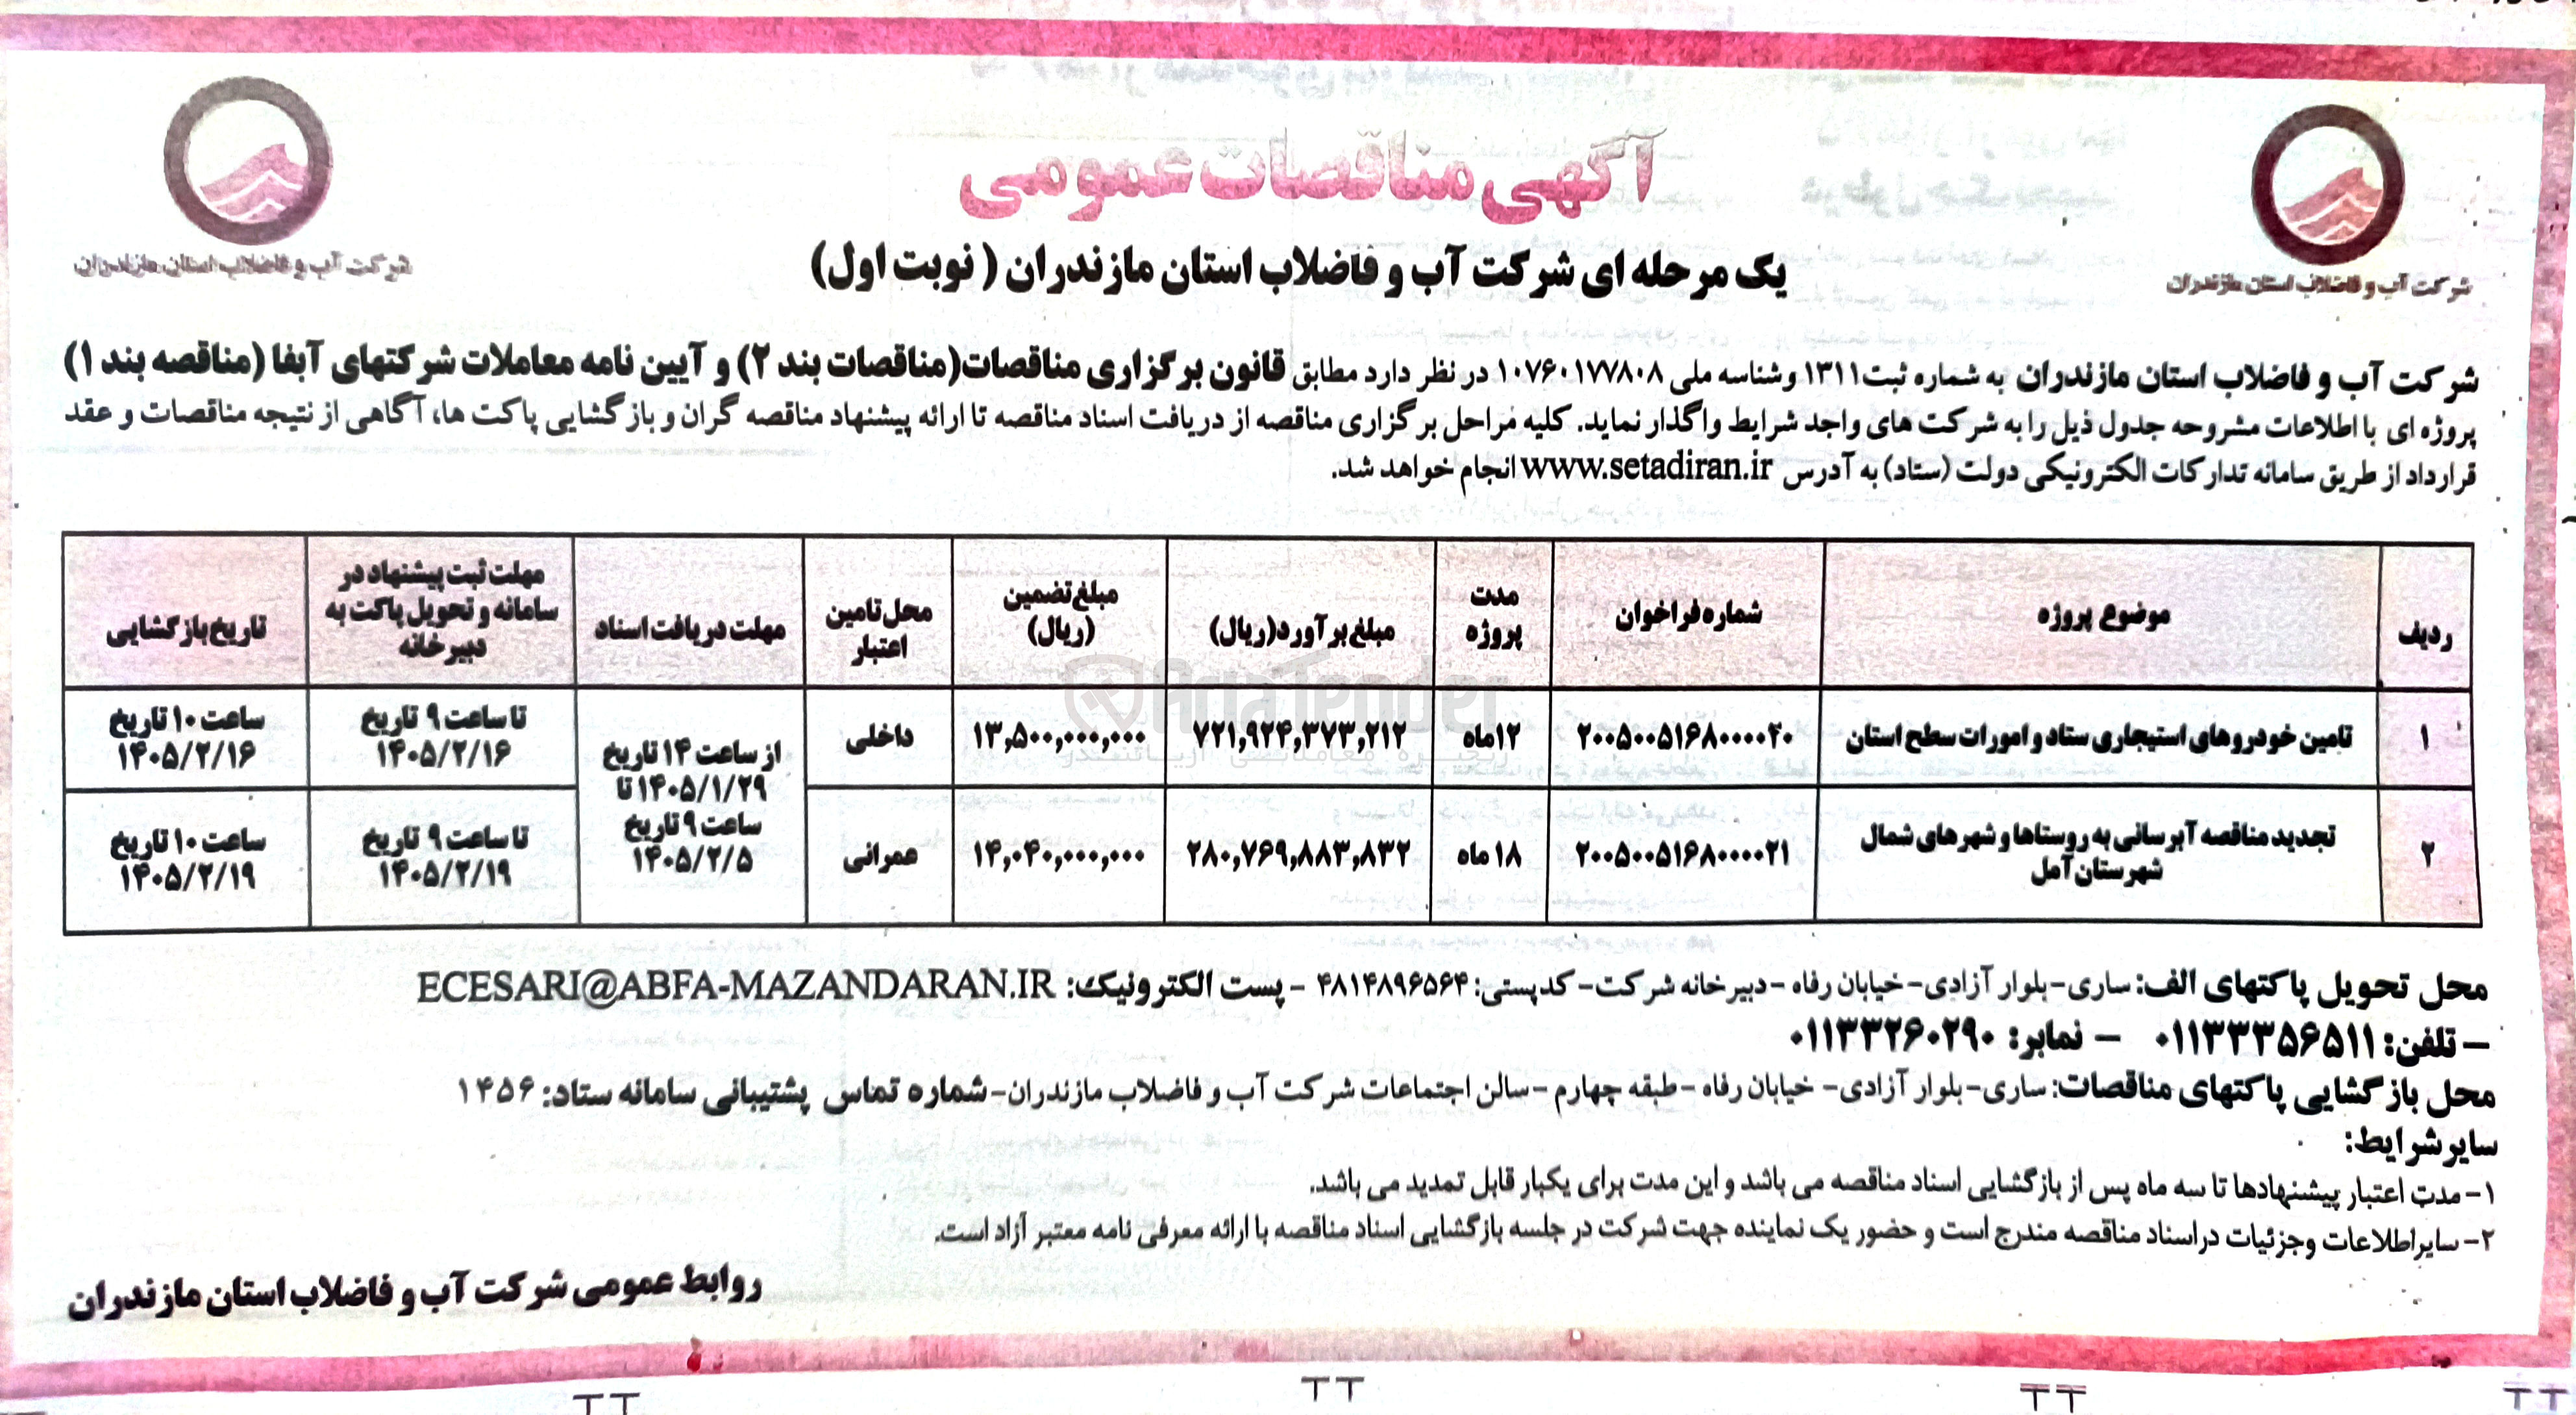 آگهی مناقصات عمومی
یک مرحله ای شرکت آب و فاضلاب استان مازندران ( نوبت اول)
شرکت آب و فاضلاب استان مازندران
شرکت آب و فاضلاب استان مازندران
شرکت آب و فاضلاب استان مازندران به شماره ثبت۱۳۱۱ وشناسه ملی ۱۰۷۶۰۱۷۷۸۰۸ در نظر دارد مطابق قانون برگزاری مناقصات(مناقصات بند ۲) و آیین نامه معاملات شرکتهای آبفا (مناقصه بند ۱)
پروژه ای با اطلاعات مشروحه جدول ذیل را به شرکت های واجد شرایط واگذار نماید. کلیه مراحل برگزاری مناقصه از دریافت اسناد مناقصه تا ارائه پیشنهاد مناقصه گران و بازگشایی پاکت ها، آگاهی از نتیجه مناقصات و عقد
قرارداد از طریق سامانه تدارکات الکترونیکی دولت (ستاد) به آدرس www.setadiran.ir انجام خواهد شد.
ردیف موضوع پروژه شماره فراخوان مدت پروژه مبلغ برآورد(ریال) مبلغ تضمین (ریال) محل تامین اعتبار مهلت دریافت اسناد مهلت ثبت پیشنهاد در سامانه و تحویل پاکت به دبیرخانه تاریخ بازگشایی
۱ تامین خودروهای استیجاری ستاد و امورات سطح استان ۲۰۰۵۰۰۵۱۶۸۰۰۰۰۲۰ ۱۲ماه ۷۲۱,۹۲۴,۳۷۳,۲۱۲ ۱۳,۵۰۰,۰۰۰,۰۰۰ داخلی از ساعت ۱۴ تاریخ ۱۴۰۵/۱/۲۹ تا ساعت ۹ تاریخ ۱۴۰۵/۲/۵ تا ساعت ۹ تاریخ ۱۴۰۵/۲/۱۶ ساعت ۱۰ تاریخ ۱۴۰۵/۲/۱۶
۲ تجدید مناقصه آبرسانی به روستاها و شهرهای شمال شهرستان آمل ۲۰۰۵۰۰۵۱۶۸۰۰۰۰۲۱ ۱۸ ماه ۲۸۰,۷۶۹,۸۸۳,۸۳۲ ۱۴,۰۴۰,۰۰۰,۰۰۰ عمرانی تا ساعت ۹ تاریخ ۱۴۰۵/۲/۱۹ ساعت ۱۰ تاریخ ۱۴۰۵/۲/۱۹
AriaTender
زنجیره معاملاتی آریاتندر
محل تحویل پاکتهای الف: ساری- بلوار آزادی- خیابان رفاه -دبیرخانه شرکت- کدپستی: ۴۸۱۴۸۹۶۵۶۴ - پست الکترونیک: ECESARI@ABFA-MAZANDARAN.IR
- تلفن: ۰۱۱۳۳۳۵۶۵۱۱ - نمابر: ۰۱۱۳۳۲۶۰۲۹۰
محل بازگشایی پاکتهای مناقصات: ساری- بلوار آزادی- خیابان رفاه -طبقه چهارم -سالن اجتماعات شرکت آب و فاضلاب مازندران- شماره تماس پشتیبانی سامانه ستاد: ۱۴۵۶
سایر شرایط:
۱- مدت اعتبار پیشنهادها تا سه ماه پس از بازگشایی اسناد مناقصه می باشد و این مدت برای یکبار قابل تمدید می باشد.
۲- سایراطلاعات وجزئیات دراسناد مناقصه مندرج است و حضور یک نماینده جهت شرکت در جلسه بازگشایی اسناد مناقصه با ارائه معرفی نامه معتبر آزاد است.
روابط عمومی شرکت آب و فاضلاب استان مازندران